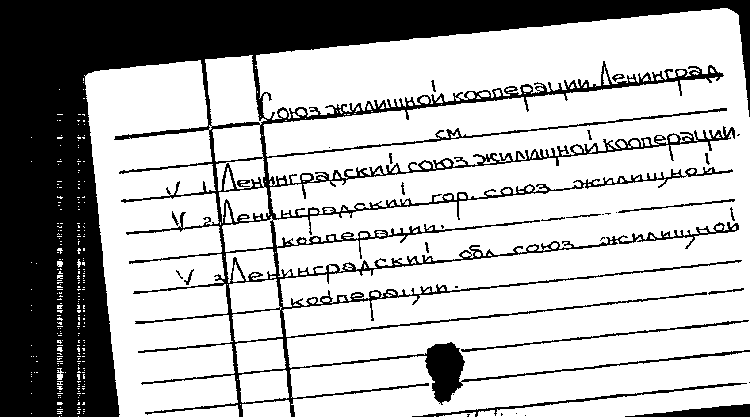 Союз жилищной кооперации. Ленинград
см.
V 1. Ленинградский союз жилищной кооперации.
V 2. Ленинградский гор. союз жилищной
кооперации.
V 3. Ленинградский обл союз жилищной
кооперации.